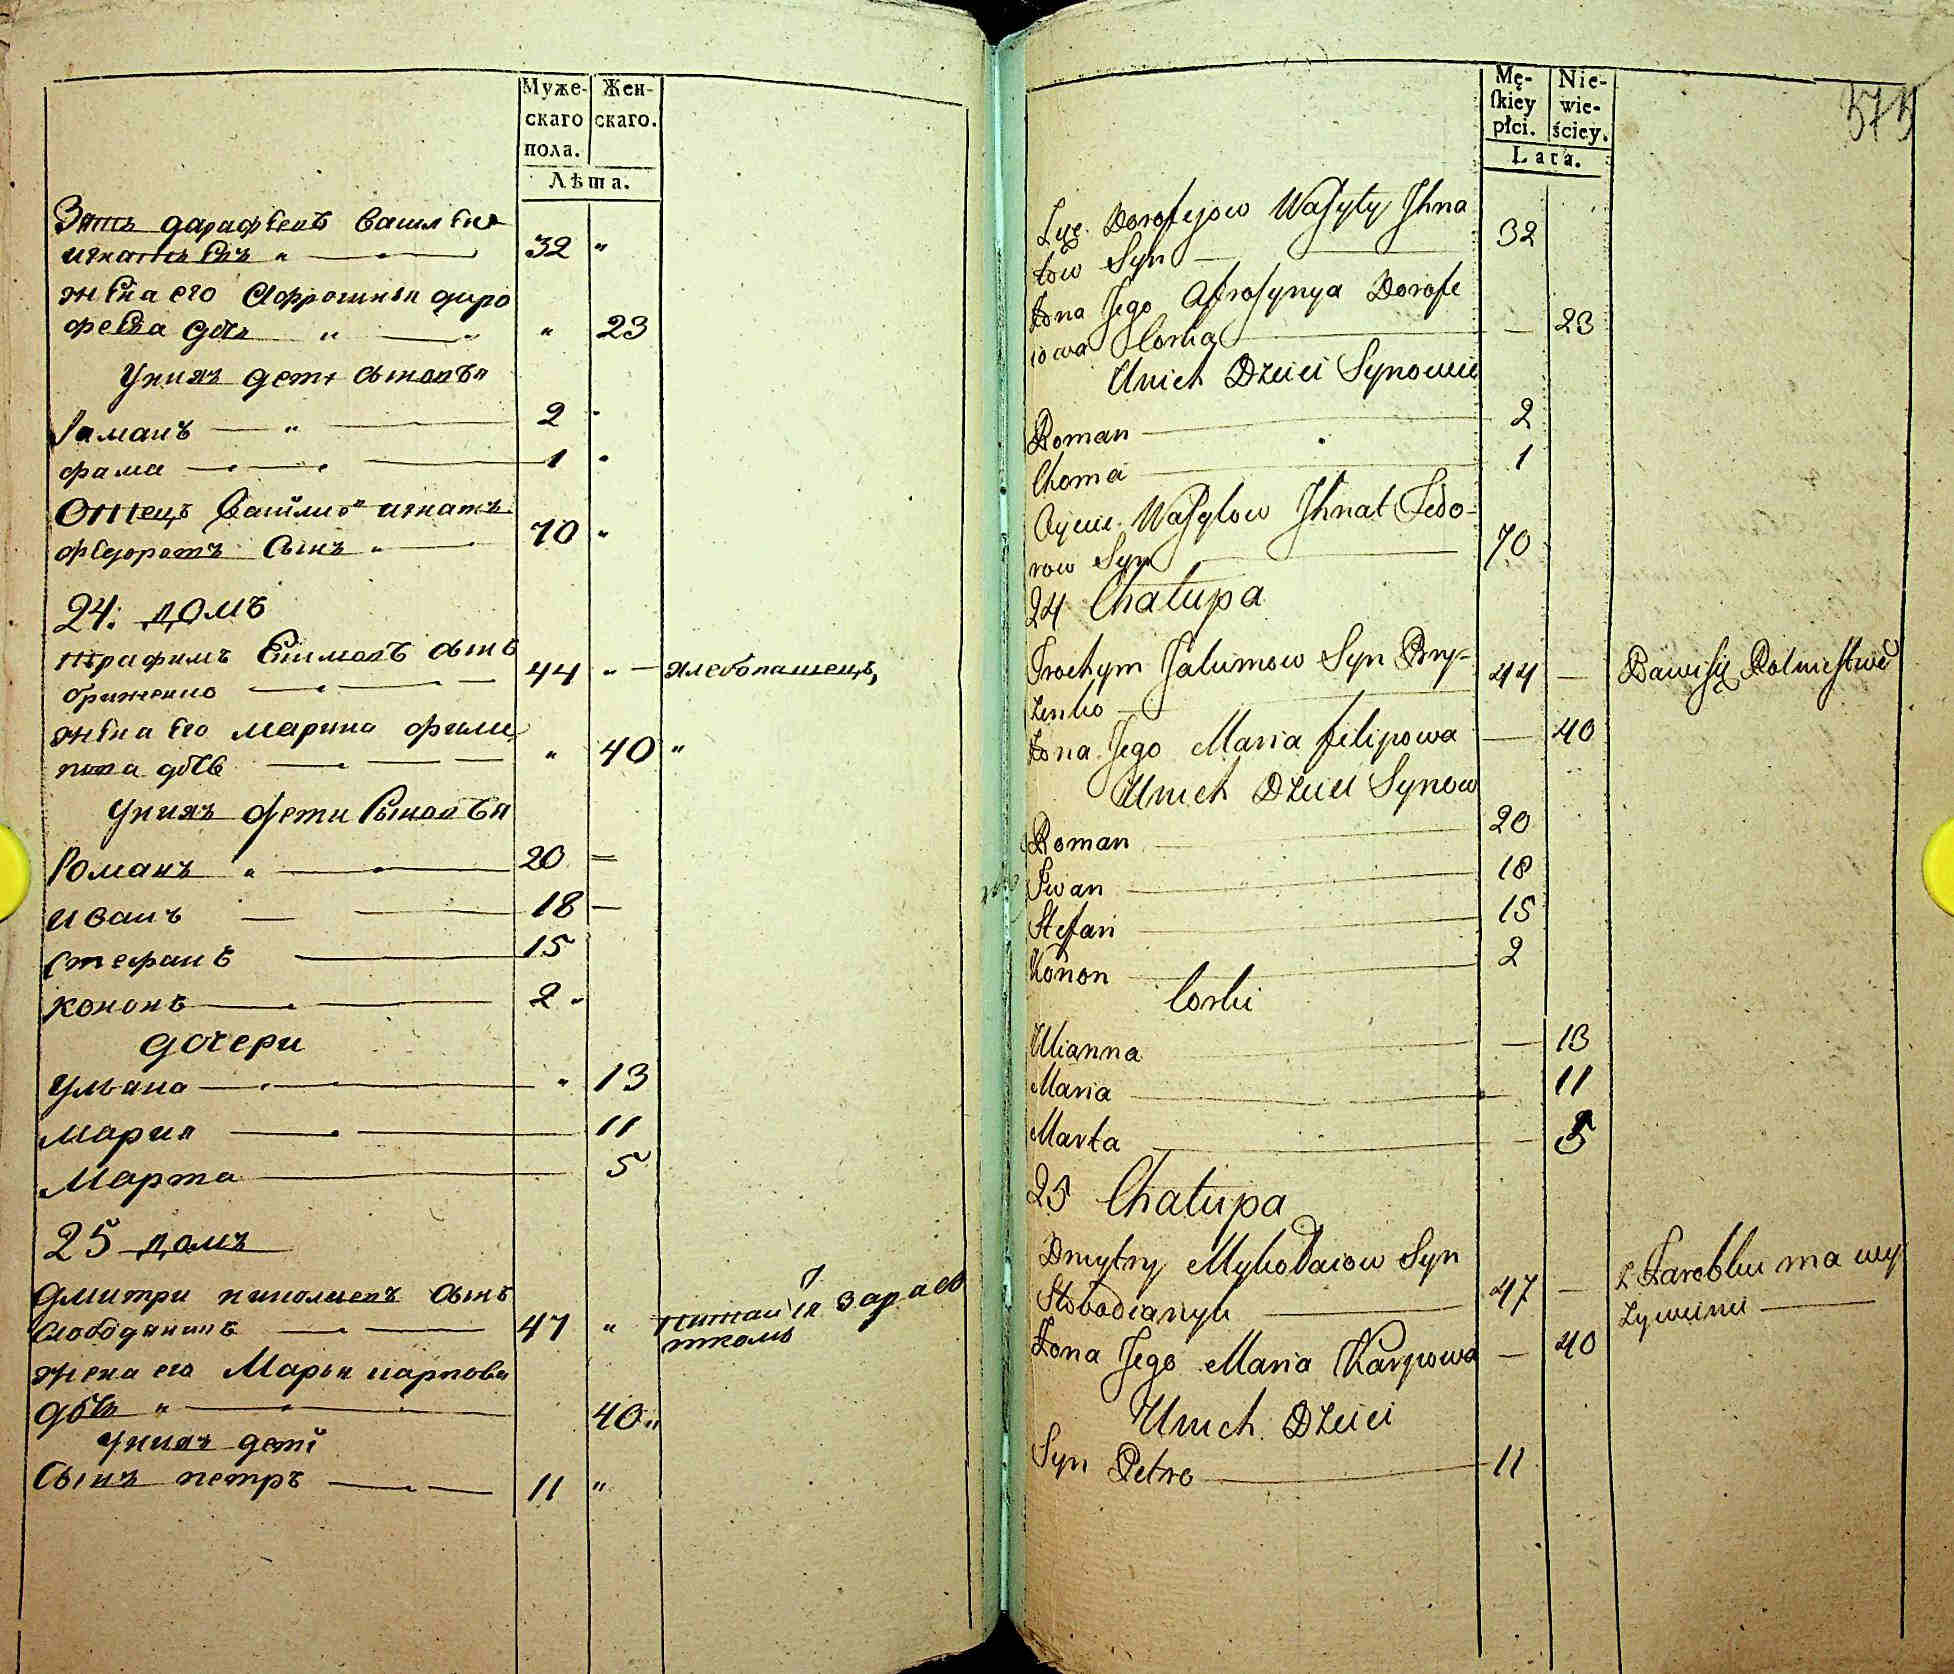 Муже-
скаго
пола.
Жен-
скаго.
Лѣта.
Зять дарафеевъ Василеи
игнатьевъ 32 "
жена его Афросинья даро
феева дочь " 23
У нихъ дети сыновья
Раманъ 2
фама 1
Отецъ Васильо" игнатъ
федоровъ Сынъ 70 "
24: домъ
трафимъ Екимовъ сынъ
бриженко 44 " хлебопашецъ
жена его марина фили
пова дочь " 40 "
У нихъ дети Сыновья
Романъ 20
иванъ 18
стефанъ 15
кононъ 2
дочери
ульяна 13
Мария 11
Марта 5
25 домъ
Дмитри николаевъ сынъ
слободянинъ 47 " питаится зараб
жена его Марья карпова
дочь " 40 "
У нихъ дети
Сынъ петръ 11 "
Mę-
skiey
płci.
Nie-
wie-
ściey.
Lata.
373
Zięć Dorofejow Wasyly Ihna
tow Syn 32
Żona Jego Afrosynya Dorofe
iowa Corka 23
Unich Dzieci Synowie
Roman 2
Choma 1
Oyciec Wasylow Ihnat Fedo-
row Syn 70
24 Chałupa
Trochym Jakimow Syn Bry-
żenko 44 Bawi się Rolnictwem
Żona Jego Maria filipowa 40
Unich Dzieci Synow
Roman 20
Iwan 18
Stefan 15
Konon 2
Corki
Ulianna 13
Maria 11
Marta 5
25 Chałupa
Dmytry Mykołaiow Syn
Słobodianyk 47 z Zarobku ma wy
żywieni
Żona Jego Maria Karpowa 40
Unich Dzieci
Syn Petro 11